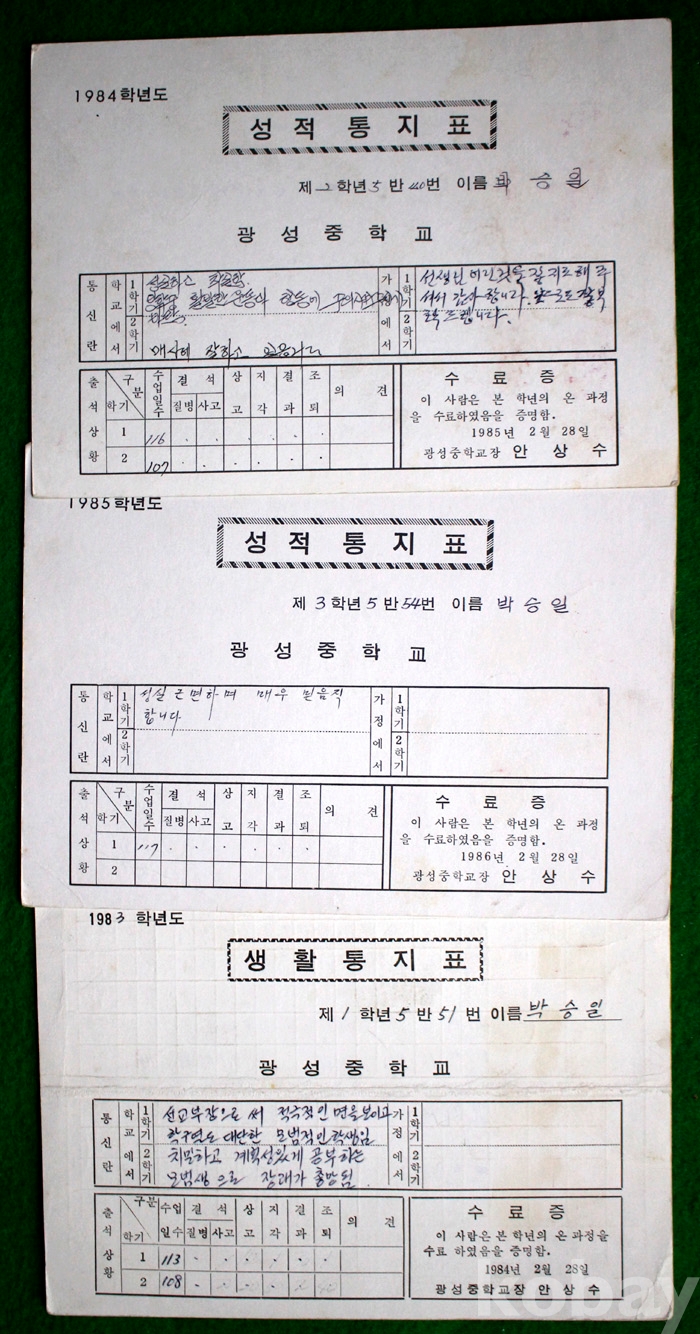 1984학년도
성적통지표
제 2 학년 5 반 40번 이름 박승일
광성중학교
통신란 학교에서 1학기 2학기 가정에서 1학기 2학기
활발한 운동과
매사에 잘하고
선생님 어린것을 잘 지도해 주
셔서 감사 합니다. 앞으로도 잘 부
탁 드립니다.
출석상황 구분 학기 수업일수 결석 질병 사고 상고 지각 결과 조퇴 의견
1 116 . . . . . .
2 107 . . . . . .
수료증
이 사람은 본 학년의 온 과정
을 수료하였음을 증명함.
1985년 2월 28일
광성중학교장 안상수
1985학년도
성적통지표
제 3 학년 5 반 54번 이름 박승일
광성중학교
통신란 학교에서 1학기 2학기 가정에서 1학기 2학기
성실 근면하며 매우 믿음직
합니다
출석상황 구분 학기 수업일수 결석 질병 사고 상고 지각 결과 조퇴 의견
1 117 . . . . . .
2
수료증
이 사람은 본 학년의 온 과정
을 수료하였음을 증명함.
1986년 2월 28일
광성중학교장 안상수
1983 학년도
생활통지표
제 1 학년 5 반 51 번 이름 박승일
광성중학교
통신란 학교에서 1학기 2학기 가정에서 1학기 2학기
선교부장으로 써 적극적인 면을 보이고
학구열도 대단한 모범적인 학생임
치밀하고 계획성있게 공부하는
모범생으로 장래가 촉망됨.
출석상황 구분 학기 수업일수 결석 질병 사고 상고 지각 결과 조퇴 의견
1 113 . . . . . .
2 108 . . . . . .
수료증
이 사람은 본 학년의 온 과정을
수료 하였음을 증명함.
1984년 2월 28일
광성중학교장 안상수
kobay